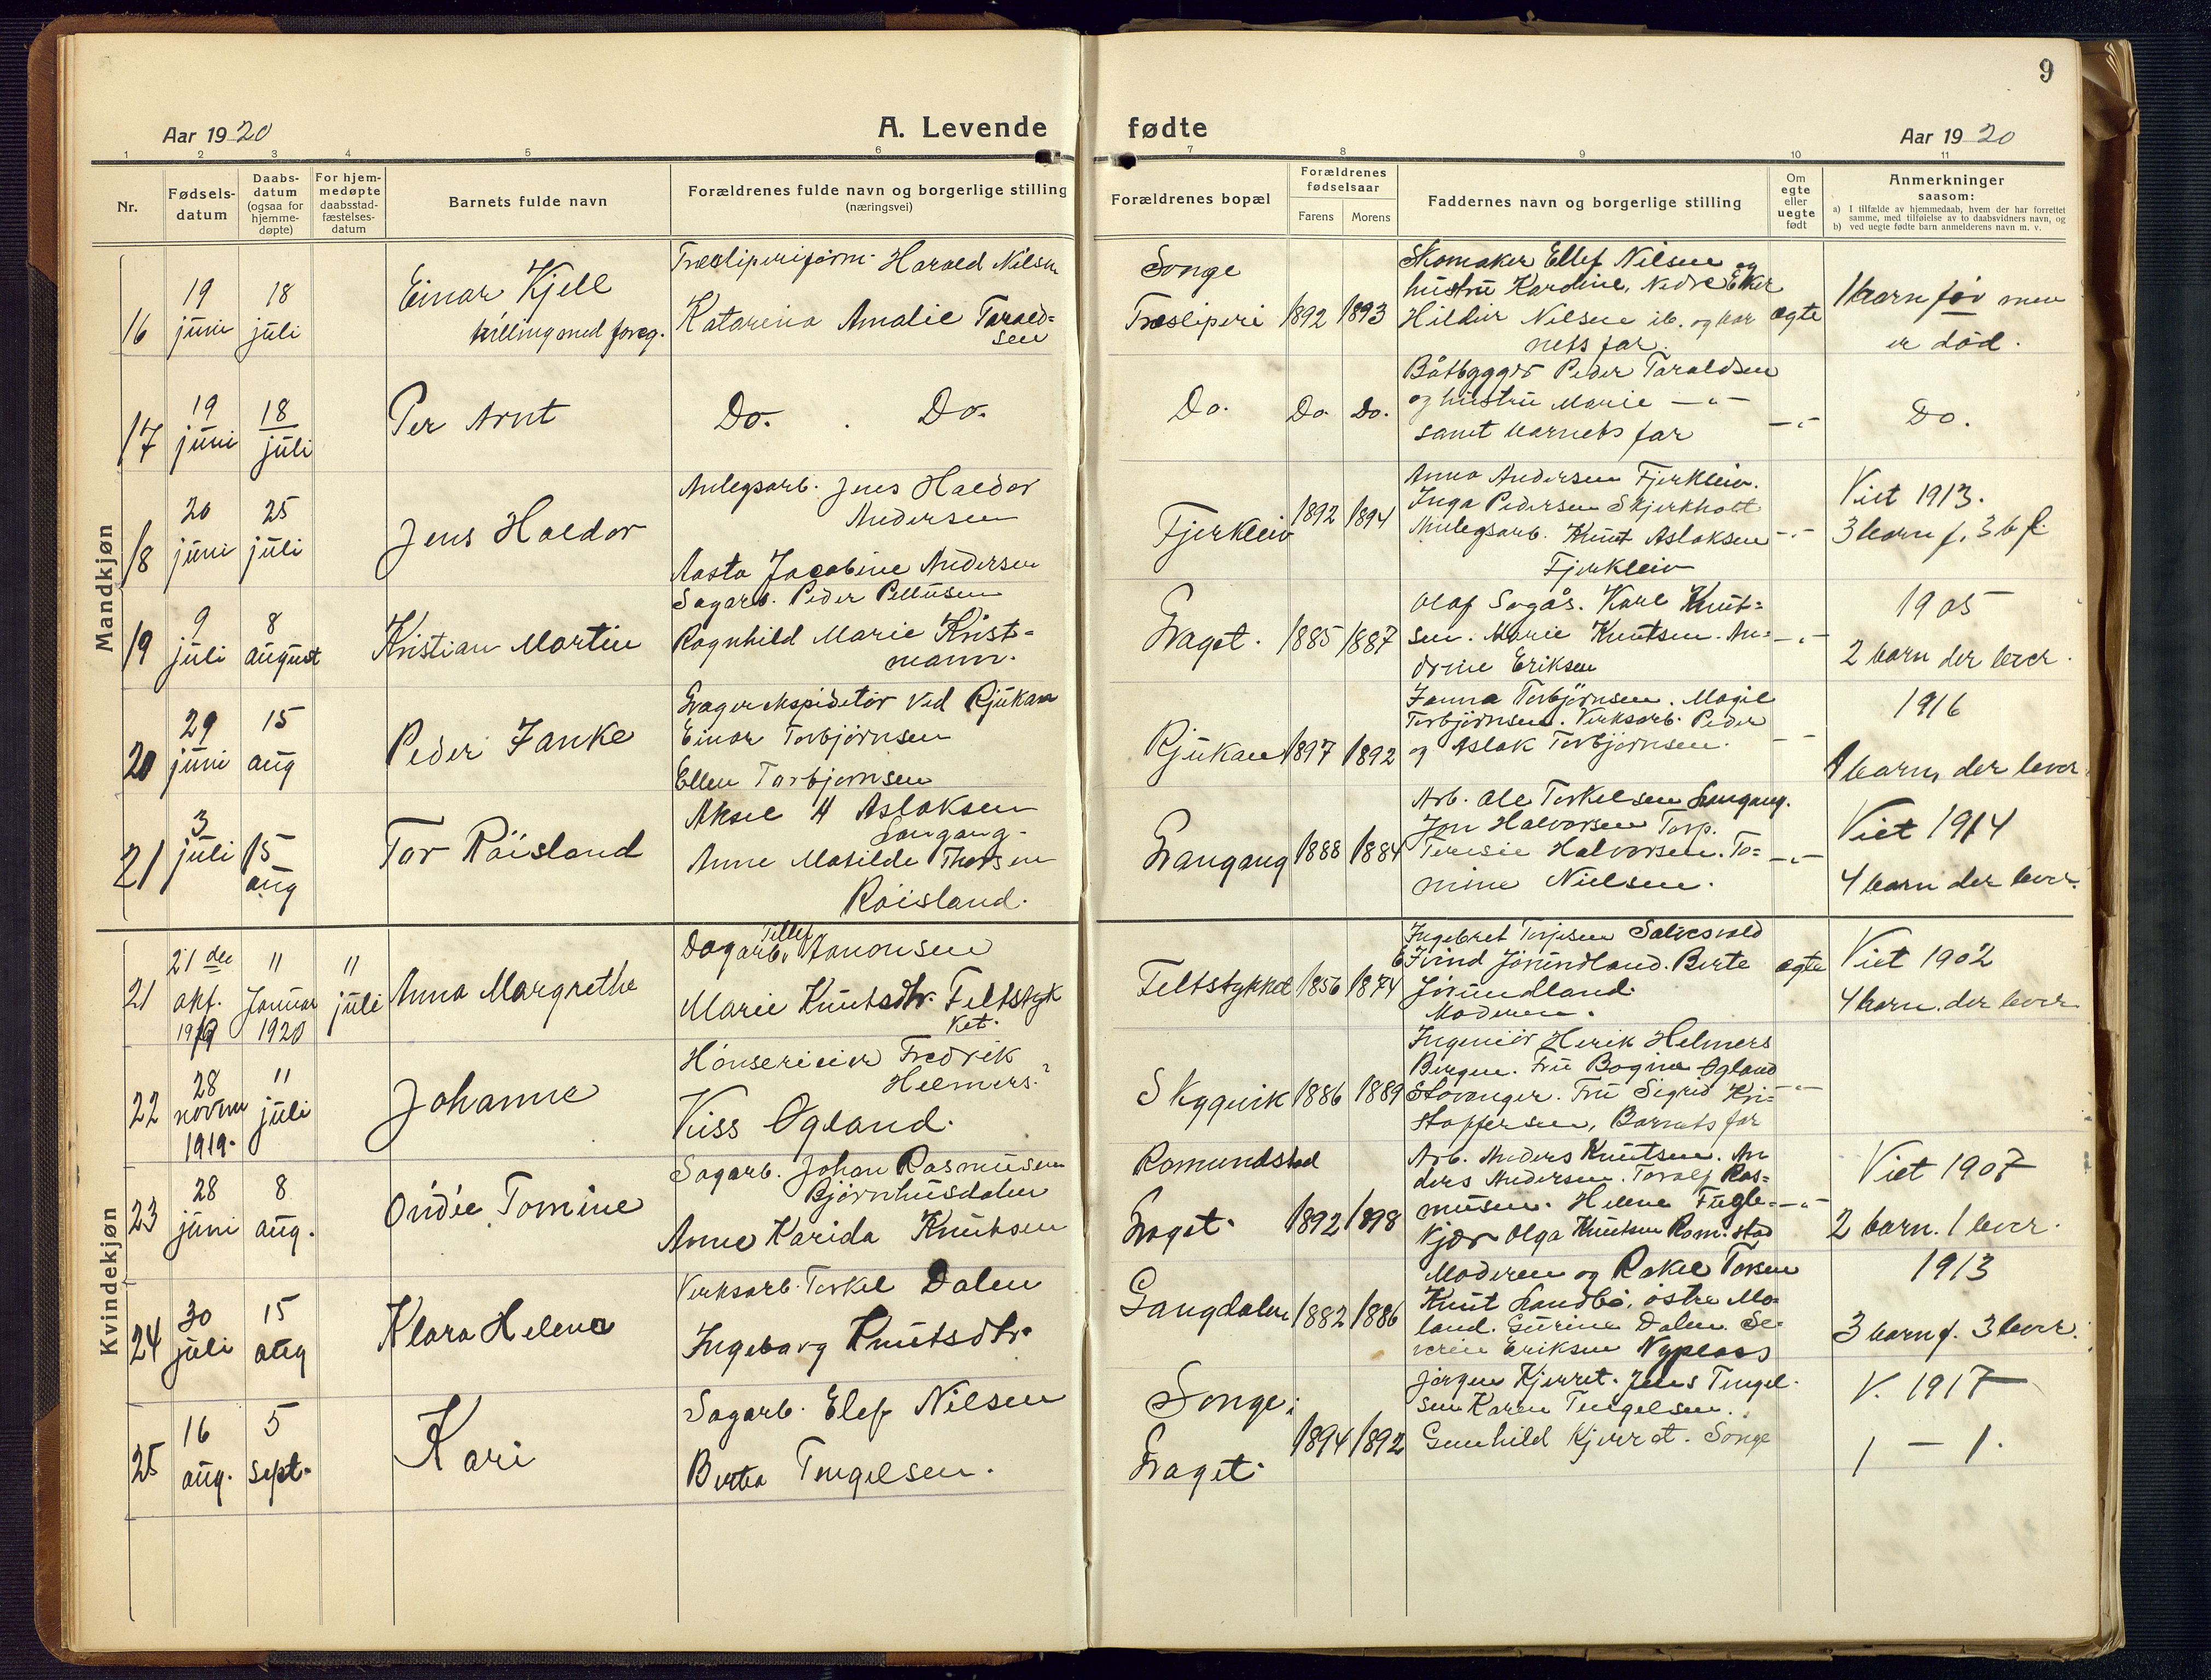 9
Aar 1920
A. Levende
fødte
Aar 1920
1 2 3 4 5 6 7 8 9 10 11
Nr.
Fødsels-
datum
Daabs-
datum
(ogsaa for
hjemme-
døpte)
For hjem-
medøpte
daabsstad-
fæstelses-
datum
Barnets fulde navn
Forældrenes fulde navn og borgerlige stilling
(næringsvei)
Forældrenes bopæl
Forældrenes
fødselsaar
Farens
Morens
Faddernes navn og borgerlige stilling
Om
egte
eller
uegte
født
Anmerkninger
saasom:
a) I tilfælde av hjemmedaab, hvem der har forrettet
samme, med tilføielse av to daabsvidners navn, og
b) ved uegte fødte barn anmelderens navn m. v.
Mandkjøn
16
19
juni
18
juli
Einar Kjell
tvilling med foreg.
Harald Nilsen
Katarina Amalie Tarald=
sen
Songe
Træsliperi
1892
1893
Skomaker Ellef Nilsen og
hustru Kardine, Nedre Eker
Hildur Nilsen ib. og bar
nets far.
egte
1 barn før men
er død.
17
19
juni
18
juli
Per Arnt
Do. Do.
Do.
Do
Do.
Båtbygger Peder Taraldsen
og hustru Marie —"—
samt barnets far
—"—
Do.
18
20
juni
25
juli
Jens Haldor
Anlegsarb. Jens Haldor
Andersen
Aasta Jacobine Andersen
Fjerkleiv
1892
1894
Anna Andersen Fjerkleiv.
Inga Pedersen Skjerkholt
Anlegsarb. Knut Aslaksen
Fjerkleiv
—"—
Viet 1913.
3 barn f. 3 b. f.
19
9
juli
8
august
Kristian Martin
Sagarb. Peder Pettersen
Ragnhild Marie Krist=
mann.
Laget.
1885
1887
Olaf Sagås. Karl Knut=
sen. Marie Knutsen. An=
drine Eriksen
—"—
1905
2 barn der lever.
20
29
juni
15
aug
Peder Janke
Lagerekspiditør ved Rjukan
Einar Torbjørnsen
Ellen Torbjørnsen
Rjukan
1897
1892
Janna Torbjørnsen. Magil
Torbjørnsen. Verksarb. Peder
og Aslak Torbjørnsen.
— —
1916
1 barn, der lever.
21
3
juli
15
aug
Tor Röisland
Aksel H Aslaksen
Langang-
Anne Matilde Thorsen
Röisland.
Langang
1888
1884
Arb. Ole Terkelsen Langang.
Jon Halvorsen Torp.
Teresie Halvorsen. To=
mine Nielsen.
—"—
Viet 1914
4 barn der lever.
Kvindekjøn
21
21 de
okt.
1919
11
Januar
1920
11
juli
Anna Margrethe
Dagarb. Tellef Amonsen
Marie Knutsdtr. Feltstyk
ket.
Feltstykket
1856
1874
Ingebret Terjesen Salvesvold
Eivind Jorundland. Berte
Jorundland.
Moderen.
egte
Viet 1902
4 barn. der lever
22
28
novem
1919.
11
juli
Johanne
Hönserieier Fredrik
Helmers?
Kiss Ogland.
Skyggvik
1886
1889
Ingeniör Henrik Helmers
Bergen. Fru Bogina Ogland
Stavanger. Fru Sigrid Kri=
stoffersen, Barnets far
—"—
23
28
juni
8
aug.
Ondie Tomine
Sagarb. Johan Rasmusen
Bjørnhusdalen
Anne Karida Knutsen
Romundstad
Laget.
1892
1898
Arb. Anders Knutsen. An
ders Andersen. Toralf Ras=
musen. Helene Fugle=
kjær Olga Knutsen Rom.stad
—"—
Viet 1907
2 barn. 1 lever.
24
30
juli
15
aug
Klara Helene
Verksarb. Terkel Dalen
Ingeborg Knutsdtr.
Gangdalen
1882
1886
Moderen og Rakel Torsen
Knut Landbö, østre Mo=
land. Gurine Dalen. Se=
verin Eriksen Nyplass
1913
3 barn f. 3 lever.
25
16
aug.
5
sept.
Kari
Sagarb. Elef Nilsen
Berta Tengelsen.
Songe,
Laget.
1894
1892
Jörgen Kjerret. Jens Tengel.
sen Karen Tengelsen.
Gunhild Kjerret. Songe
V. 1917
1 — 1.